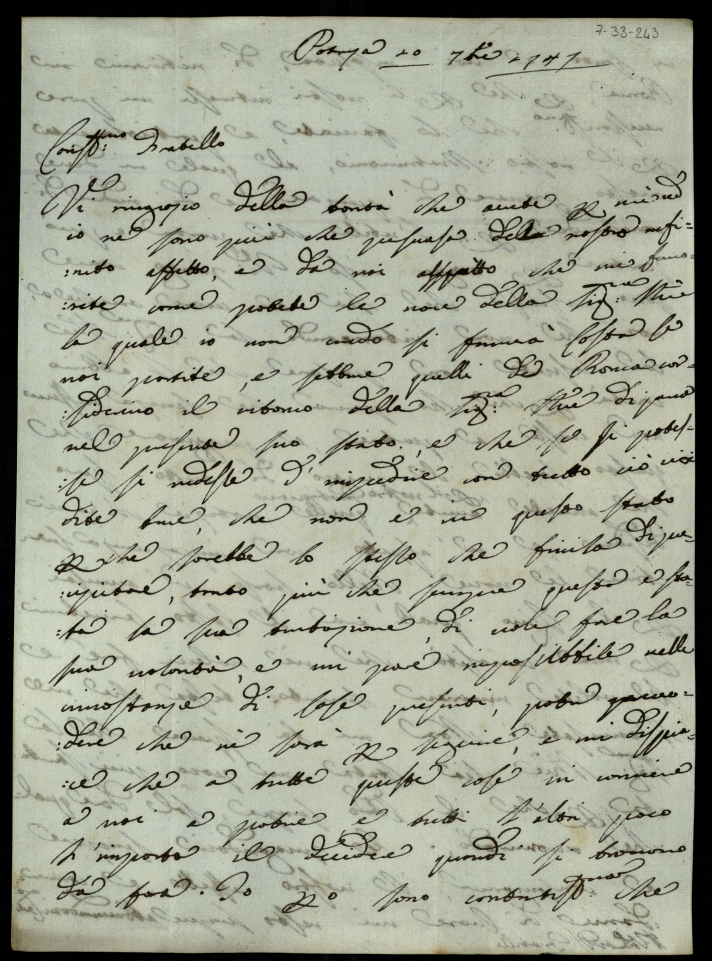 7-33-243
20 7bre 1747
Fratello
Vi ringrazio della bontà che avete
io ne sono più che persuasa della vostra infi=
:nito affetto, e da voi aspetto che mi favo=
:rite come potete le nove della Sig:ra
la quale io non credo si fermerà Costà se
voi partite, e sebene quelli di Roma cor=
:sidirino il ritorno della Sig:ra
nel presente suo stato, e che se si potes=
:se si vedesse d'impedire con tutto ciò voi
dite bene, che non è in questo stato
che sarebbe lo stesso che finirla di pre=
:cipitare, tanto più che sempre questa è sta=
:ta la sua di voler fare la
sua volontà, e mi pare impossibbile nelle
circostanze di Cose presenti, poter
:dere che ne sarà seguire, e mi dispia=
:ce che a tutte queste cose vi conviene
a voi a e tutti l'altri poco
l'importa il decidere quando si trovono
da fora. Io Po sono contentiss:ma che